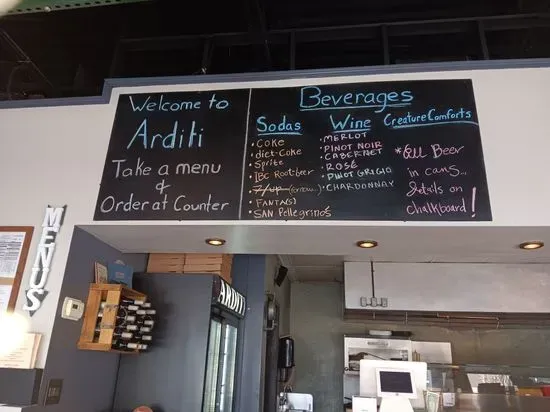 Welcome to
Arditi
Take a menu
&
Order at Counter
Beverages
Sodas
• Coke
• diet-Coke
• Sprite
• IBC Rootbeer
• 7/up
• FANTA(s)
• SAN Pellegrinos
Wine
• MERLOT
• PINOT NOIR
• CABERNET
• ROSÉ
• PINOT GRIGIO
• CHARDONNAY
Creature Comforts
*all Beer
in cans...
details on
chalkboard!
MENUS
ARDITI